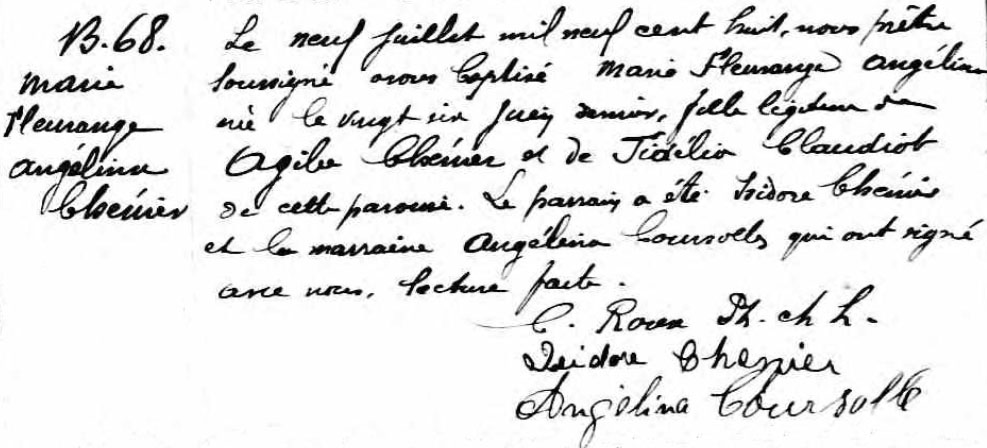 B.68.
Marie
Fleurange
Angélina
Chénier
Le neuf juillet mil neuf cent huit, nous prêtre
soussigné avons baptisé Marie Fleurange Angélina
née le vingt six juin dernier, fille légitime de
Agile Chénier et de Fidélia Claudiot
de cette paroisse. Le parrain a été Isidore Chénier
et la marraine Angélina Coursolles qui ont signé
avec nous. Lecture faite.
C. Roux
Isidore Chenier
Angélina Coursolle